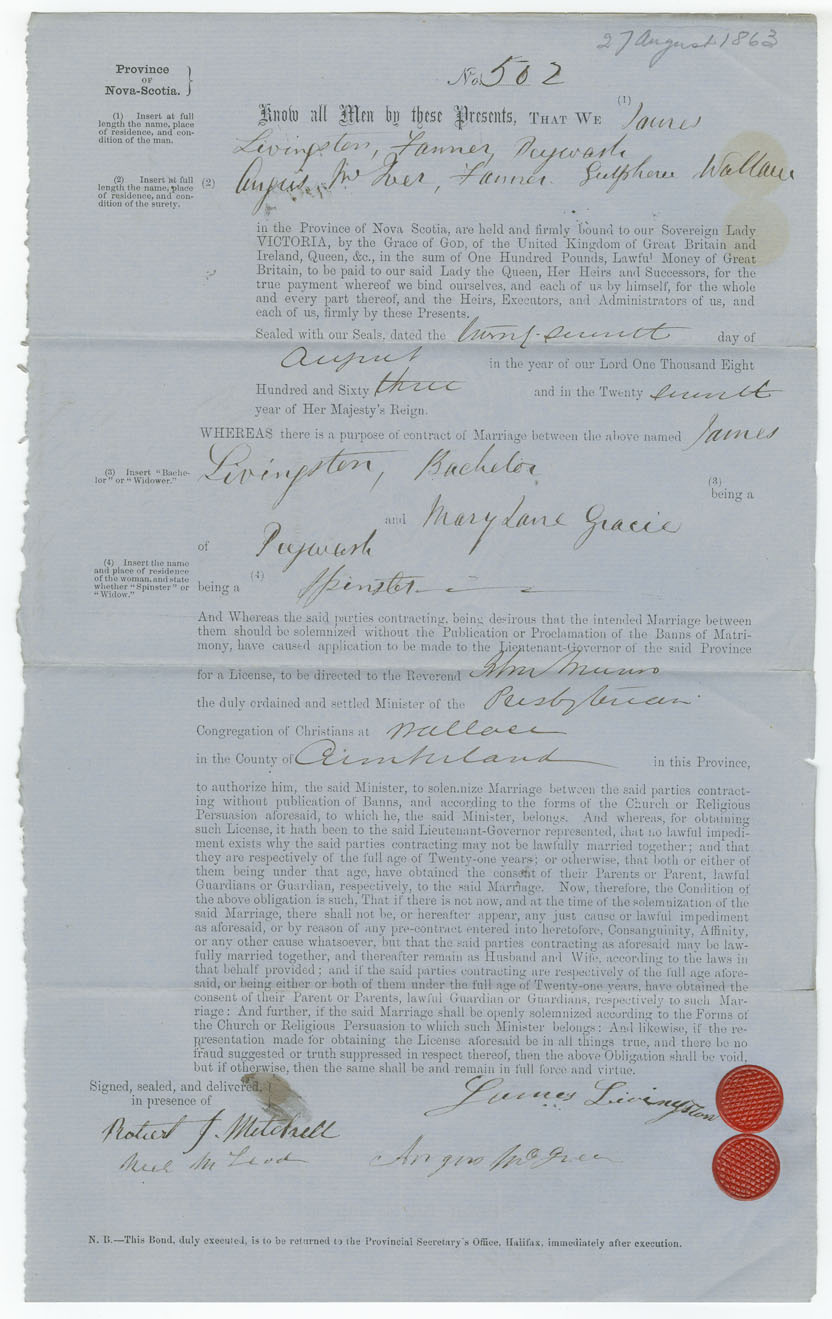 27 August 1863
Province
OF
Nova-Scotia.
No. 502
(1) Insert at full
length the name, place
of residence, and con-
dition of the man.
Know all Men by these Presents, THAT WE (1) James
Livingston, Farmer, Pugwash
(2) Insert at full
length the name, place
of residence, and con-
dition of the surety.
(2) Angus Farmer. Wallace
in the Province of Nova Scotia, are held and firmly bound to our Sovereign Lady
VICTORIA, by the Grace of GOD, of the United Kingdom of Great Britain and
Ireland, Queen, &c., in the sum of One Hundred Pounds, Lawful Money of Great
Britain, to be paid to our said Lady the Queen, Her Heirs and Successors, for the
true payment whereof we bind ourselves, and each of us by himself, for the whole
and every part thereof, and the Heirs, Executors, and Administrators of us, and
each of us, firmly by these Presents.
Sealed with our Seals, dated the twenty-seventh day of
August in the year of our Lord One Thousand Eight
Hundred and Sixty three and in the Twenty seventh
year of Her Majesty's Reign.
WHEREAS there is a purpose of contract of Marriage between the above named James
Livingston, Bachelor
(3) Insert "Bache-
lor" or "Widower."
(3)
being a
and Mary Jane Gracie
of Pugwash
(4) Insert the name
and place of residence
of the woman, and state
whether "Spinster" or
"Widow."
being a (4) Spinster
And Whereas the said parties contracting, being desirous that the intended Marriage between
them should be solemnized without the Publication or Proclamation of the Banns of Matri-
mony, have caused application to be made to the Lieutenant-Governor of the said Province
for a License, to be directed to the Reverend John Munro
the duly ordained and settled Minister of the Presbyterian
Congregation of Christians at Wallace
in the County of Cumberland in this Province,
to authorize him, the said Minister, to solemnize Marriage between the said parties contract-
ing without publication of Banns, and according to the forms of the Church or Religious
Persuasion aforesaid, to which he, the said Minister, belongs. And whereas, for obtaining
such License, it hath been to the said Lieutenant-Governor represented, that no lawful impedi-
ment exists why the said parties contracting may not be lawfully married together; and that
they are respectively of the full age of Twenty-one years; or otherwise, that both or either of
them being under that age, have obtained the consent of their Parents or Parent, lawful
Guardians or Guardian, respectively, to the said Marriage. Now, therefore, the Condition of
the above obligation is such, That if there is not now, and at the time of the solemnization of the
said Marriage, there shall not be, or hereafter appear, any just cause or lawful impediment
as aforesaid, or by reason of any pre-contract entered into heretofore, Consanguinity, Affinity,
or any other cause whatsoever, but that the said parties contracting as aforesaid may be law-
fully married together, and thereafter remain as Husband and Wife, according to the laws in
that behalf provided; and if the said parties contracting are respectively of the full age afore-
said, or being either or both of them under the full age of Twenty-one years, have obtained the
consent of their Parent or Parents, lawful Guardian or Guardians, respectively to such Mar-
riage: And further, if the said Marriage shall be openly solemnized according to the Forms of
the Church or Religious Persuasion to which such Minister belongs: And likewise, if the re-
presentation made for obtaining the License aforesaid be in all things true, and there be no
fraud suggested or truth suppressed in respect thereof, then the above Obligation shall be void,
but if otherwise, then the same shall be and remain in full force and virtue.
Signed, sealed, and delivered,
in presence of
James Livingston
Robert J. Mitchell
Neil McLeod Angus
N. B.—This Bond, duly executed, is to be returned to the Provincial Secretary's Office, Halifax, immediately after execution.